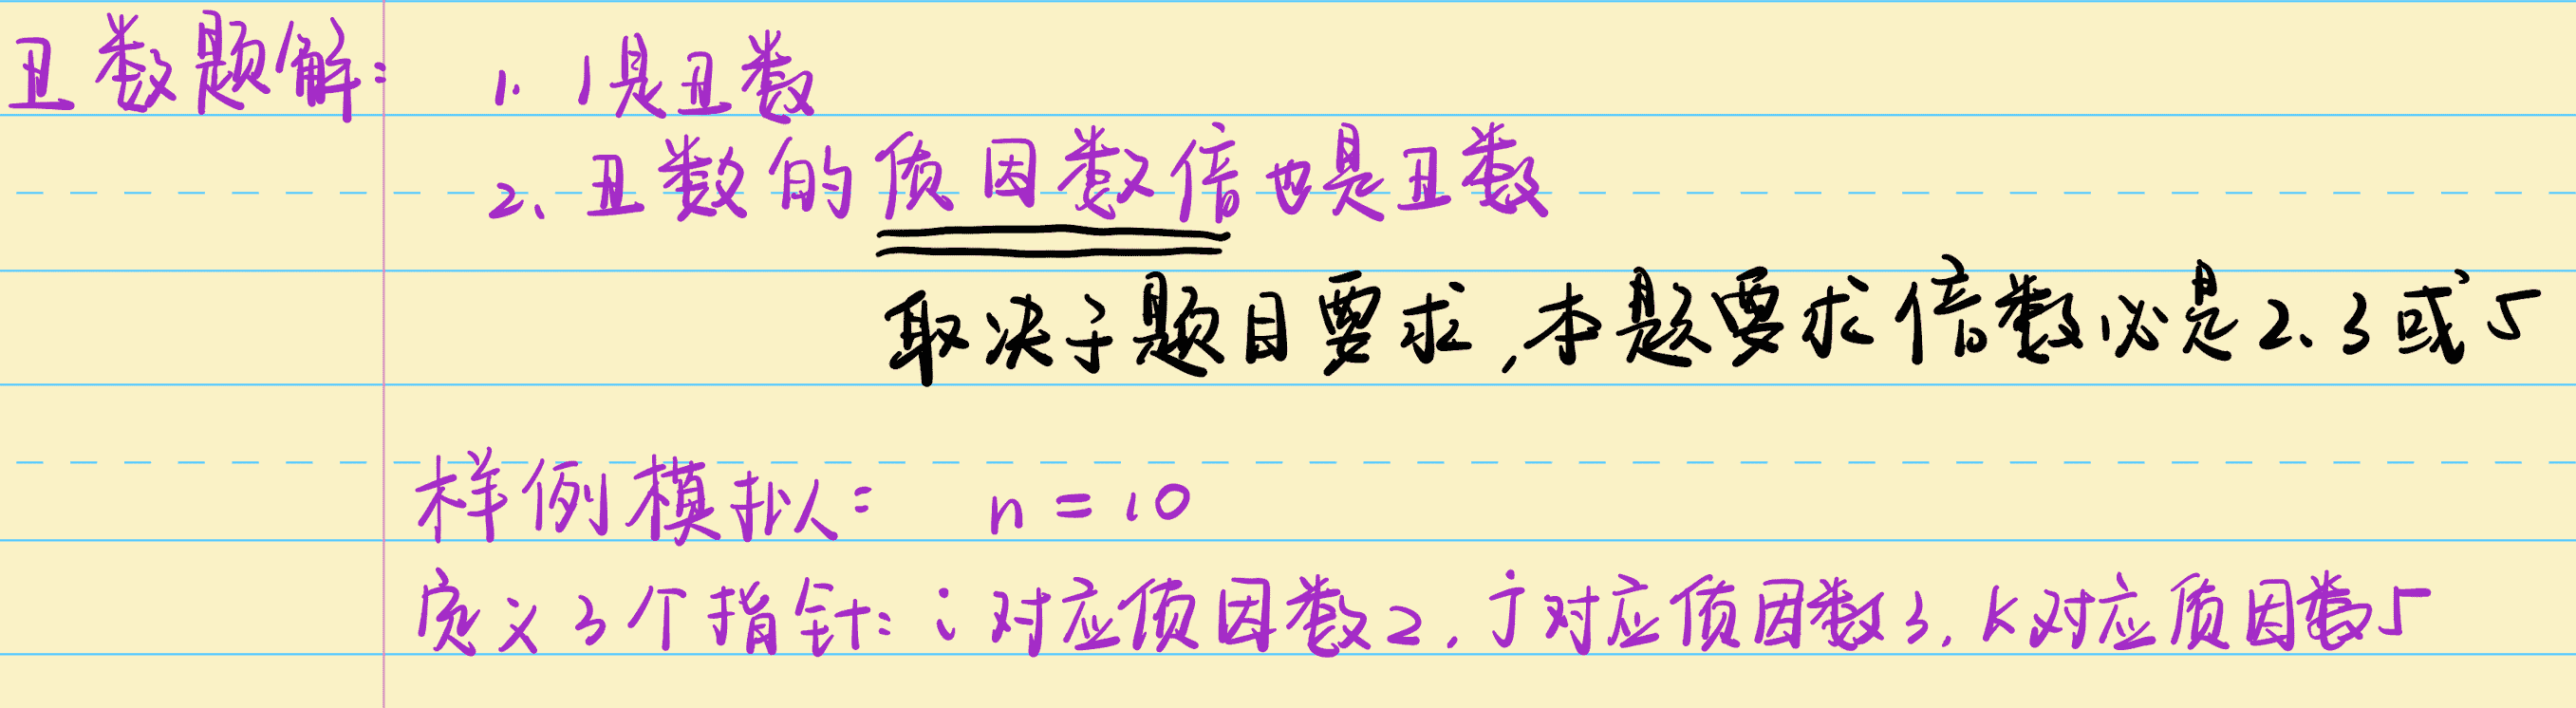 丑数题解: 1. 1是丑数
2、丑数的质因数倍也是丑数
取决于题目要求,本题要求倍数必是2、3或5
样例模拟: n = 10
定义3个指针: i对应质因数2, j对应质因数3, k对应质因数5